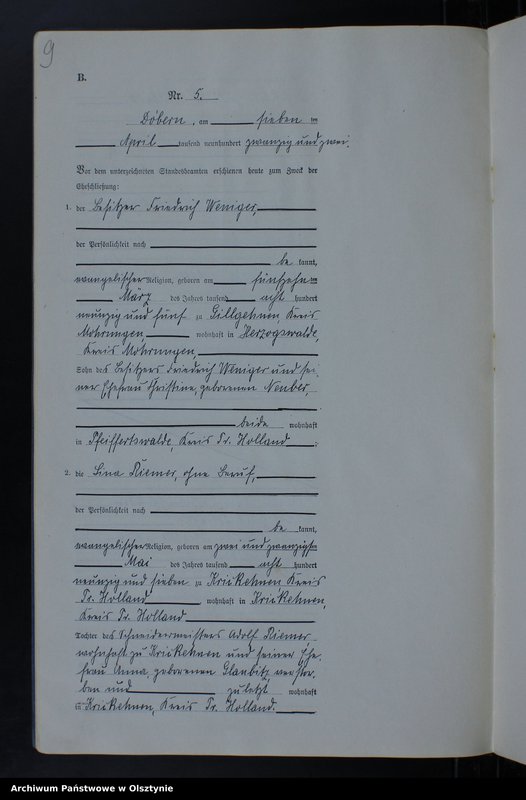 9
B.
Nr. 5.
Döbern, am sieben ten
April tausend neunhundert zwanzig und zwei.
Vor dem unterzeichneten Standesbeamten erschienen heute zum Zweck der
Eheschließung:
1. der Besitzer Friedrich Weniger,
der Persönlichkeit nach
be kannt,
evangelischer Religion, geboren am fünfzehn ten
März des Jahres tausend acht hundert
neunzig und fünf zu Gillgehnen Kreis
Mohrungen wohnhaft in Herzogswalde,
Kreis Mohrungen,
Sohn des Besitzers Friedrich Weniger und sei
ner Ehefrau Christine, geborenen Neuber,
beide wohnhaft
in Pfeiffertswalde, Kreis Pr. Holland.
2. die Lina Riemer, ohne Beruf,
der Persönlichkeit nach
be kannt,
evangelischer Religion, geboren am zwei und zwanzigsten
Mai des Jahres tausend acht hundert
neunzig und sieben zu Krickehnen Kreis
Pr. Holland wohnhaft in Krickehnen,
Kreis Pr. Holland
Tochter des Schneidermeisters Adolf Riemer
wohnhaft zu Krickehnen und seiner Ehe
frau Anna, geborenen Glaubitz, verstor
ben und zuletzt wohnhaft
in Krickehnen, Kreis Pr. Holland.
Archiwum Państwowe w Olsztynie